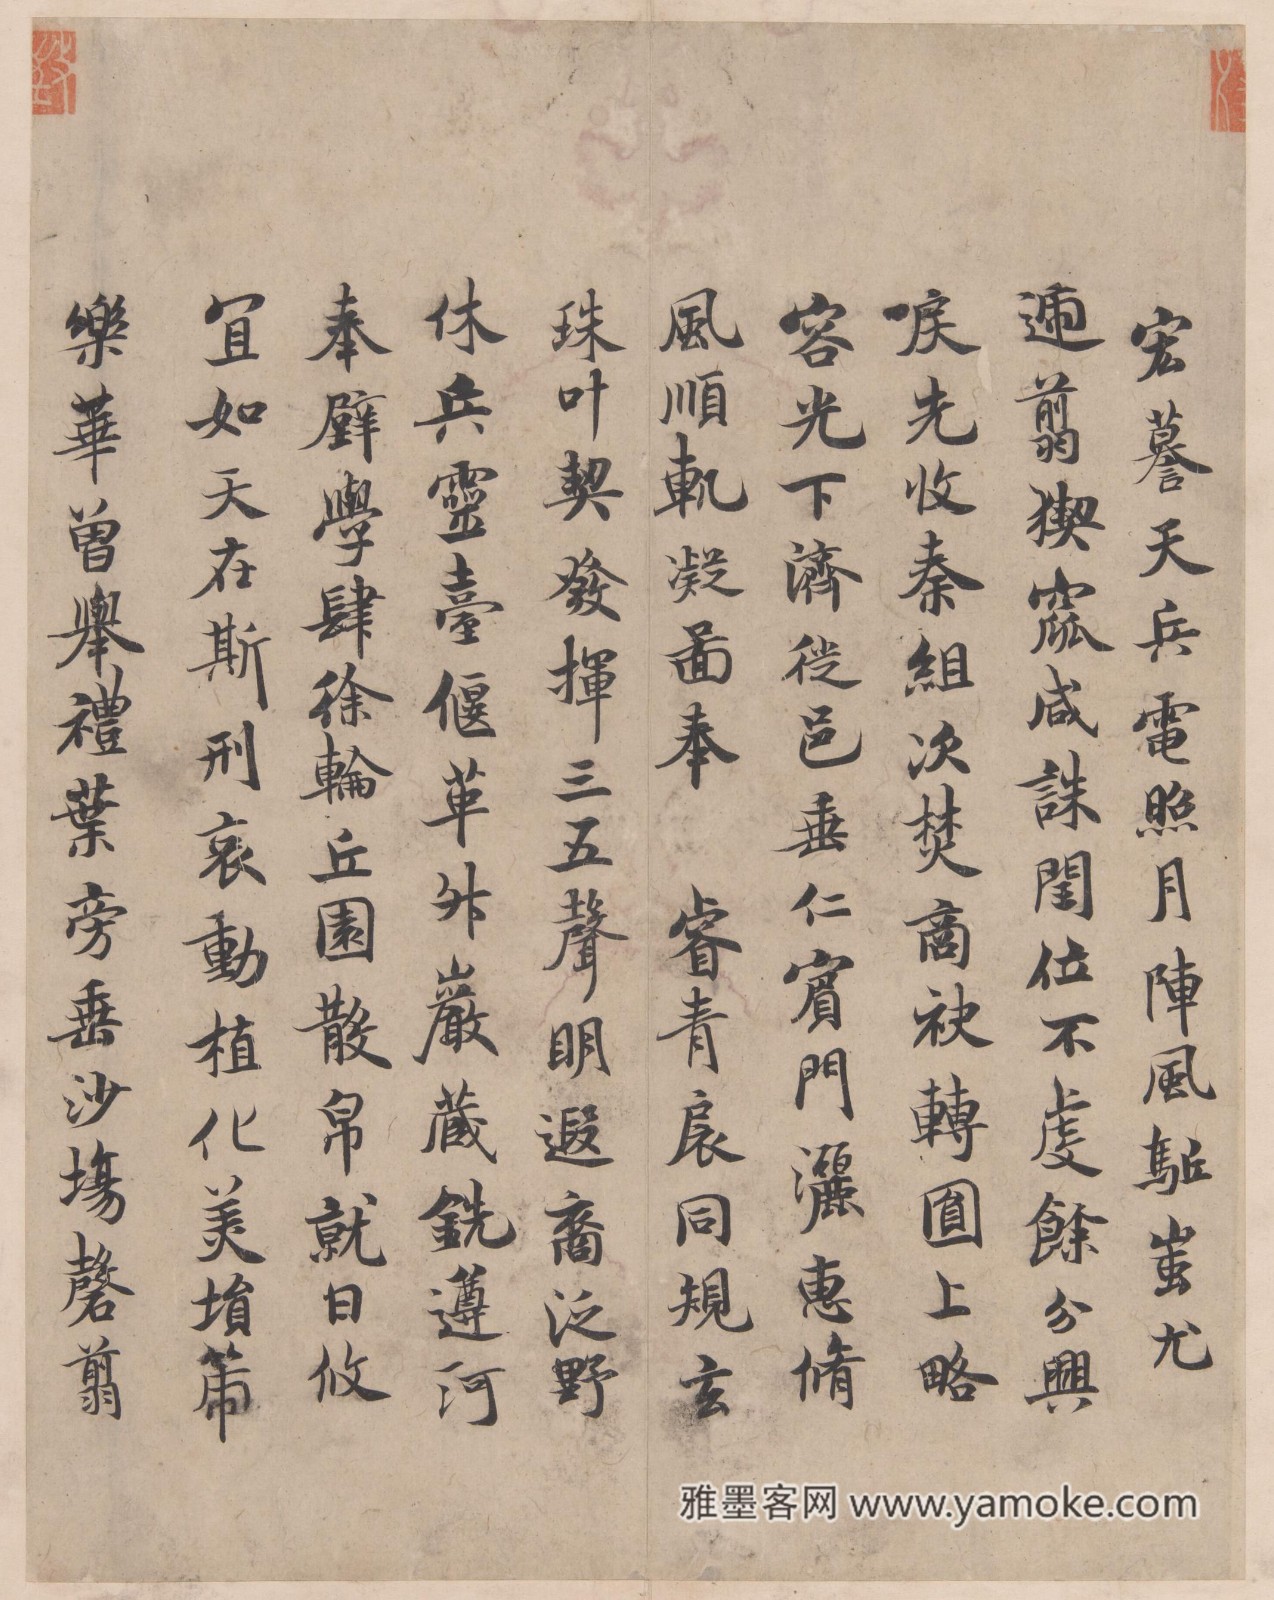 宏謩天兵電照月陣風駈蚩尤
遁翦猰窳咸誅閏位不虔餘分興
唳先收秦組次焚商袂轉圓上略
容光下濟徙邑垂仁賓門灑惠脩
風順軌凝圖奉 睿青扆同規玄
珠叶契發揮三五聲明遐裔泛野
休兵靈臺偃革舛巖藏銑遵河
奉璧學肆徐輪丘園散帛就日攸
宜如天在斯刑哀動植化美埙箒
樂華曾舉禮葉旁垂沙塲罄翦
雅墨客网 www.yamoke.com